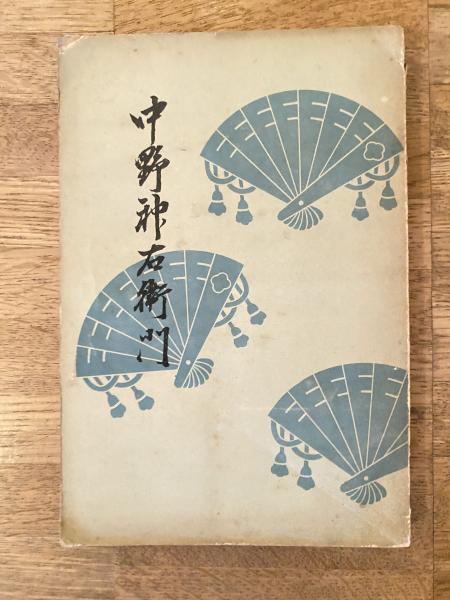 中野神右衛門